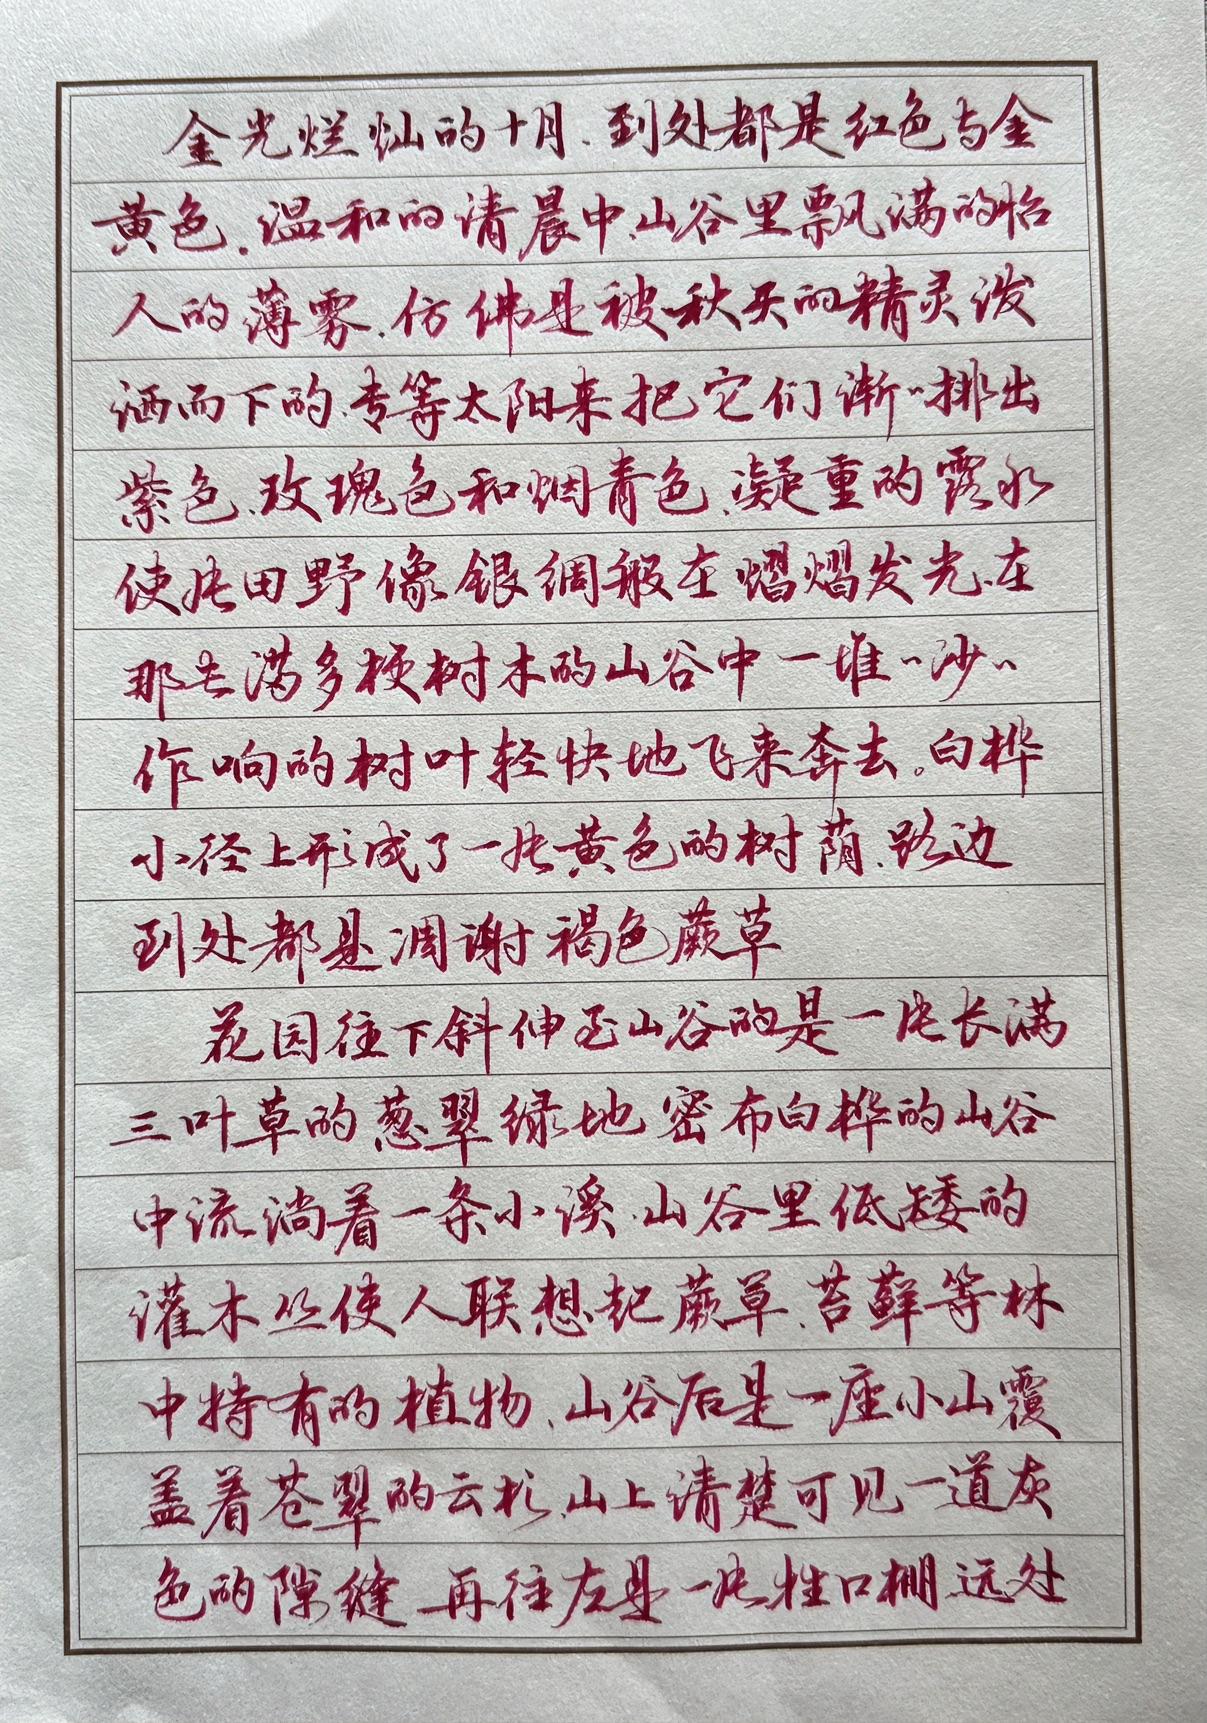 金光烂灿的十月、到处都是红色与金
黄色。温和的清晨中、山谷里飘满的怡
人的薄雾、仿佛是被秋天的精灵泼
洒而下的、专等太阳来把它们渐〃排出
紫色、玫瑰色和烟青色、凝重的露水
使片田野像银绸般在熠熠发光、在
那长满多梗树木的山谷中一堆〃沙〃
作响的树叶轻快地飞来奔去。白桦
小径上形成了一片黄色的树荫、路边
到处都是凋谢褐色蕨草
花园往下斜伸至山谷的是一片长满
三叶草的葱翠绿地密布白桦的山谷
中流淌着一条小溪、山谷里低矮的
灌木丛使人联想起蕨草、苔藓等林
中特有的植物、山谷后是一座小山覆
盖着苍翠的云杉、山上清楚可见一道灰
色的隙缝 再往左是一片牲口棚、远处